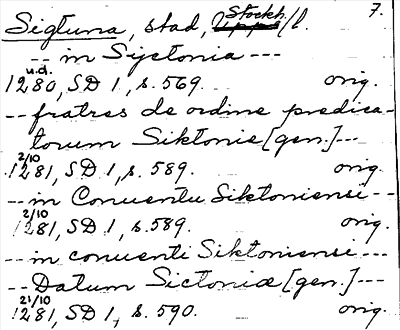 Sigtuna, stad, Stockh. l. 7.
-- in Sijctonia ---
u.d.
1280, SD 1, s. 569. orig.
-- fratres de ordine predica-
torum Siktonie [gen.] ---
2/10
1281, SD 1, s. 589. orig.
-- in Conuentu Siktoniensi --
2/10
1281, SD 1, s. 589. orig.
-- in conuenti Siktoniensi ---
-- Datum Sictonie [gen.] ---
21/10
1281, SD 1, s. 590. orig.